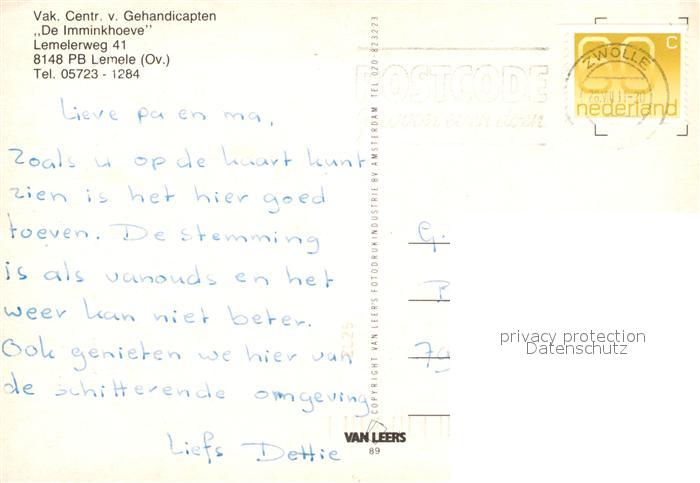 Vak. Centr. v. Gehandicapten
„De Imminkhoeve”
Lemelerweg 41
8148 PB Lemele (Ov.)
Tel. 05723 - 1284
Lieve pa en ma,
Zoals u op de kaart kunt
zien is het hier goed
toeven. De stemming
is als vanouds en het
weer kan niet beter.
Ook genieten we hier van
de schitterende omgeving
Liefs Dettie
COPYRIGHT VAN LEER'S FOTODRUKINDUSTRIE BV AMSTERDAM TEL 020 - 823223
VAN LEERS
89
POSTCODE
ZWOLLE
C
nederland
G.
P
79
privacy protection
Datenschutz